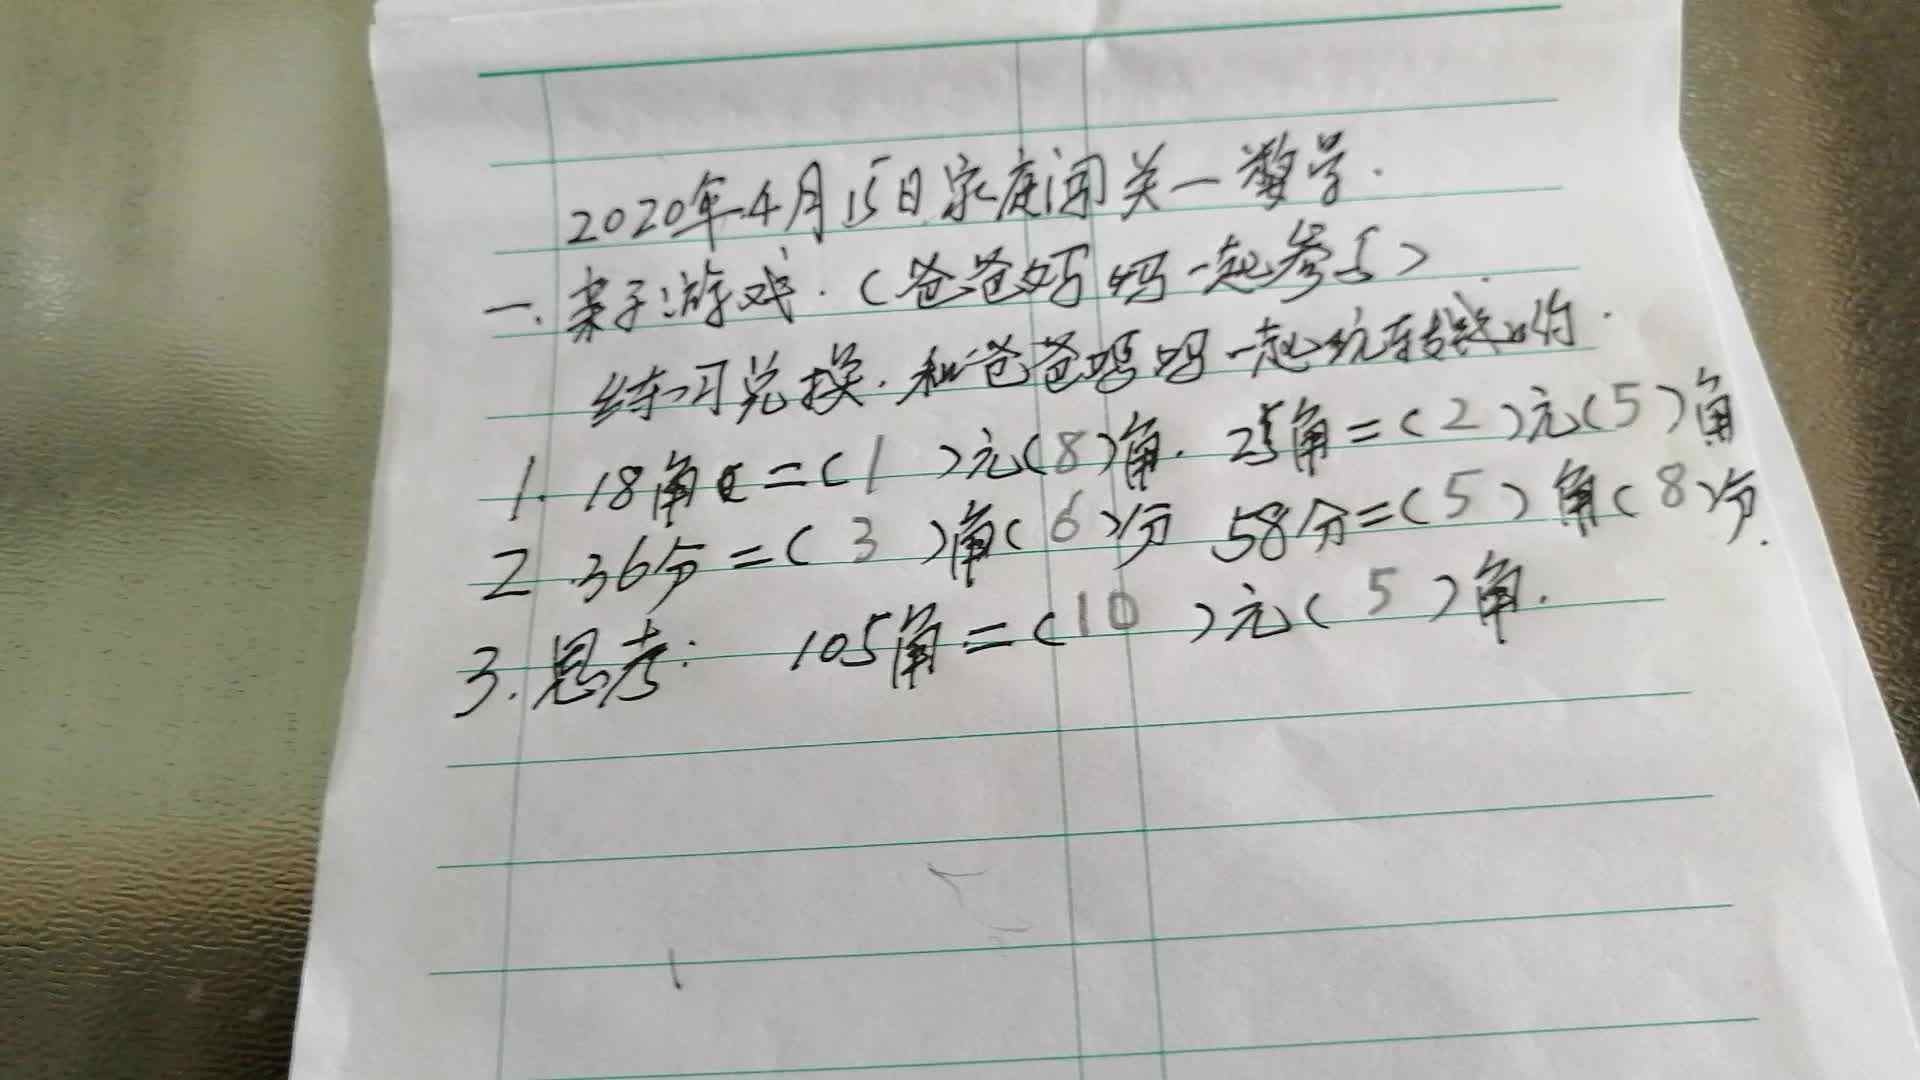 2020年4月15日家庭闯关一数学.
一.亲子游戏.(爸爸妈妈一起参与)
练习兑换.和爸爸妈妈一起玩转换哟.
1. 18角=(1)元(8)角. 25角=(2)元(5)角
2 .36分=(3)角(6)分 58分=(5)角(8)分.
3.思考: 105角=(10)元(5)角.